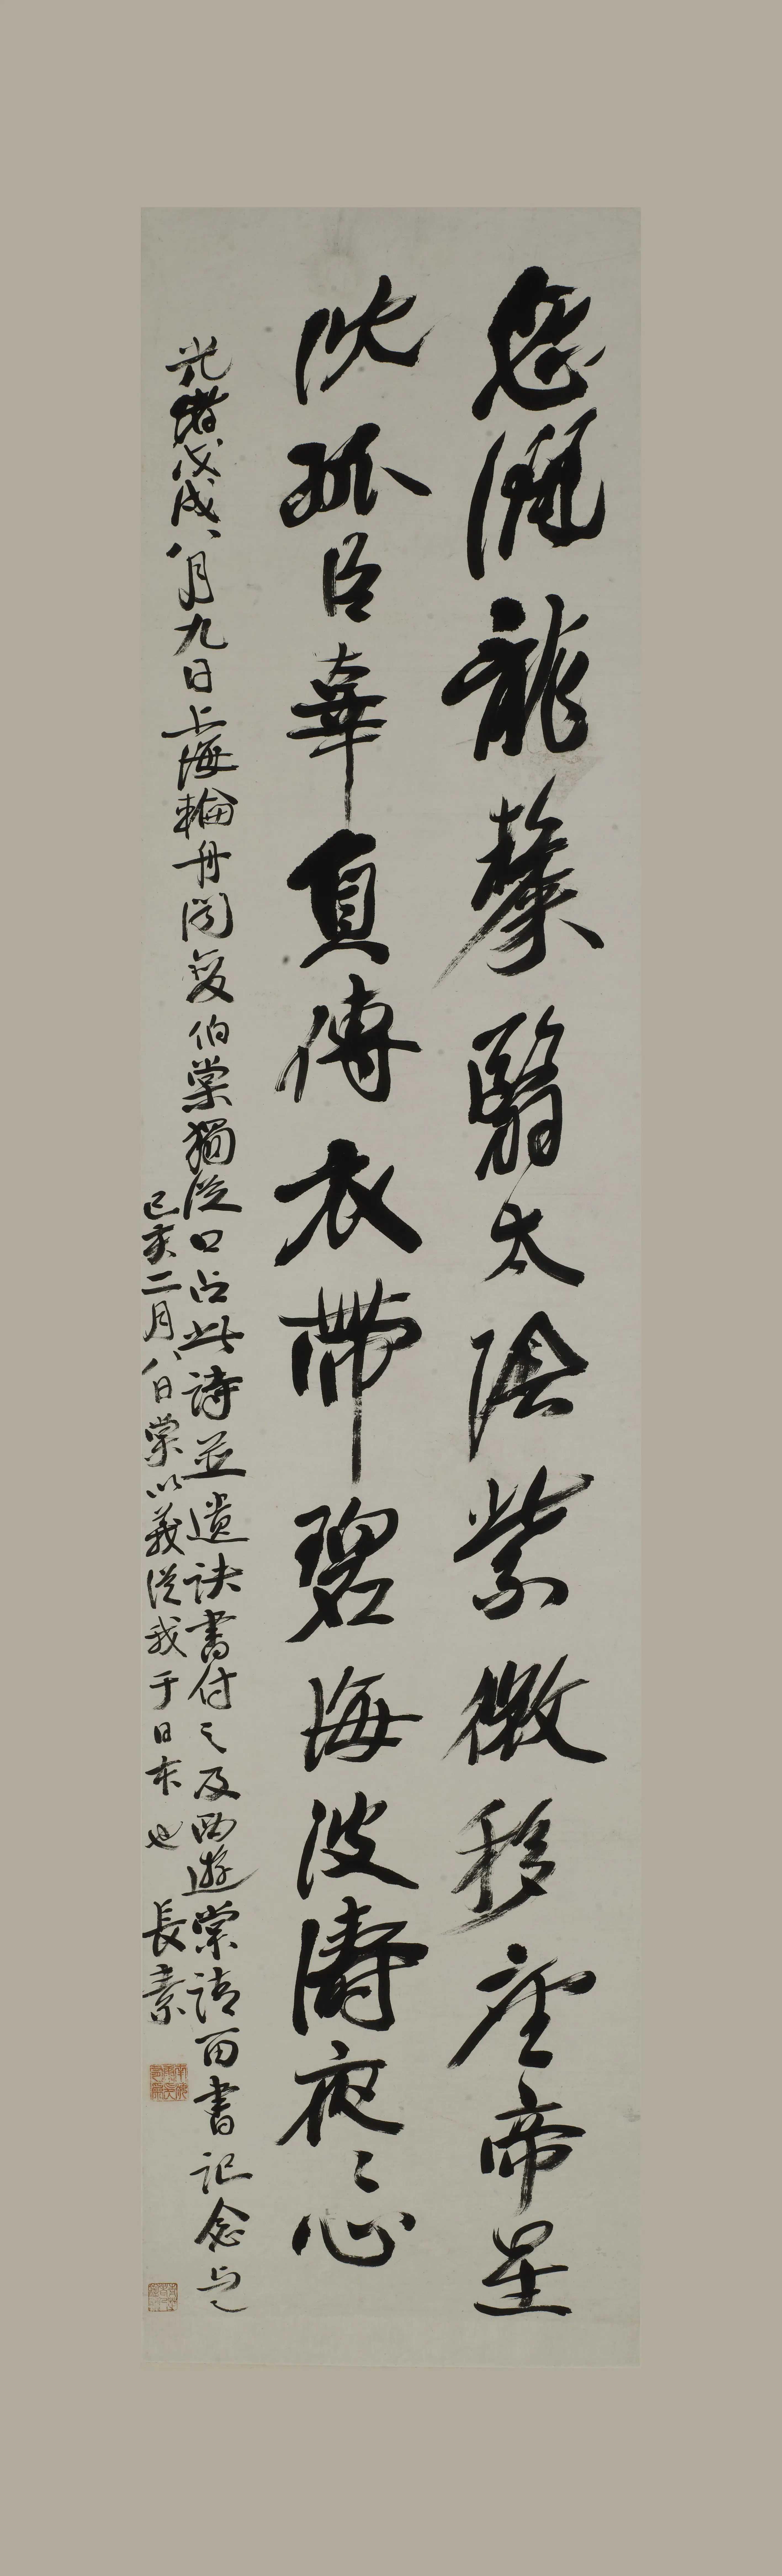 忽灑龍漦翳太陰紫微移座帝星
沈孤臣辜負傳衣帶碧海波濤夜〻心
光緒戊戌八月九日上海輪舟聞變伯棠獨從口占此詩並遺訣書付之及西遊棠請再書記念与之
己亥二月八日棠以義從我于日本也 長素